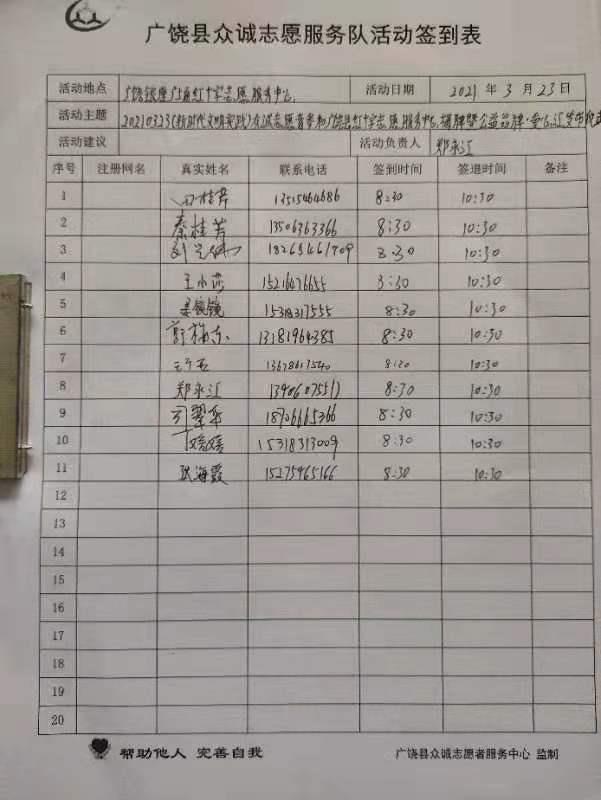 广饶县众诚志愿服务队活动签到表
活动地点 广饶银座广场红十字志愿服务中心 活动日期 2021年3月23日
活动主题 20210323(新时代文明实践)众诚志愿者参加广饶县红十字志愿服务中心揭牌暨公益品牌
活动建议 活动负责人 郑永江
序号 注册网名 真实姓名 联系电话 签到时间 签退时间 备注
1 桂芳 13515464686 8:30 10:30
2 秦桂芳 13506363366 8:30 10:30
3 18265461709 8:30 10:30
4 王小莎 15216076655 8:30 10:30
5 镜镜 15318317555 8:30 10:30
6 13181964385 8:30 10:30
7 8:30 10:30
8 郑永江 8:30 10:30
9 18706665366 8:30 10:30
10 丁媛媛 15318313009 8:30 10:30
11 张海霞 15275465166 8:30 10:30
12
13
14
15
16
17
18
19
20
帮助他人 完善自我 广饶县众诚志愿者服务中心 监制